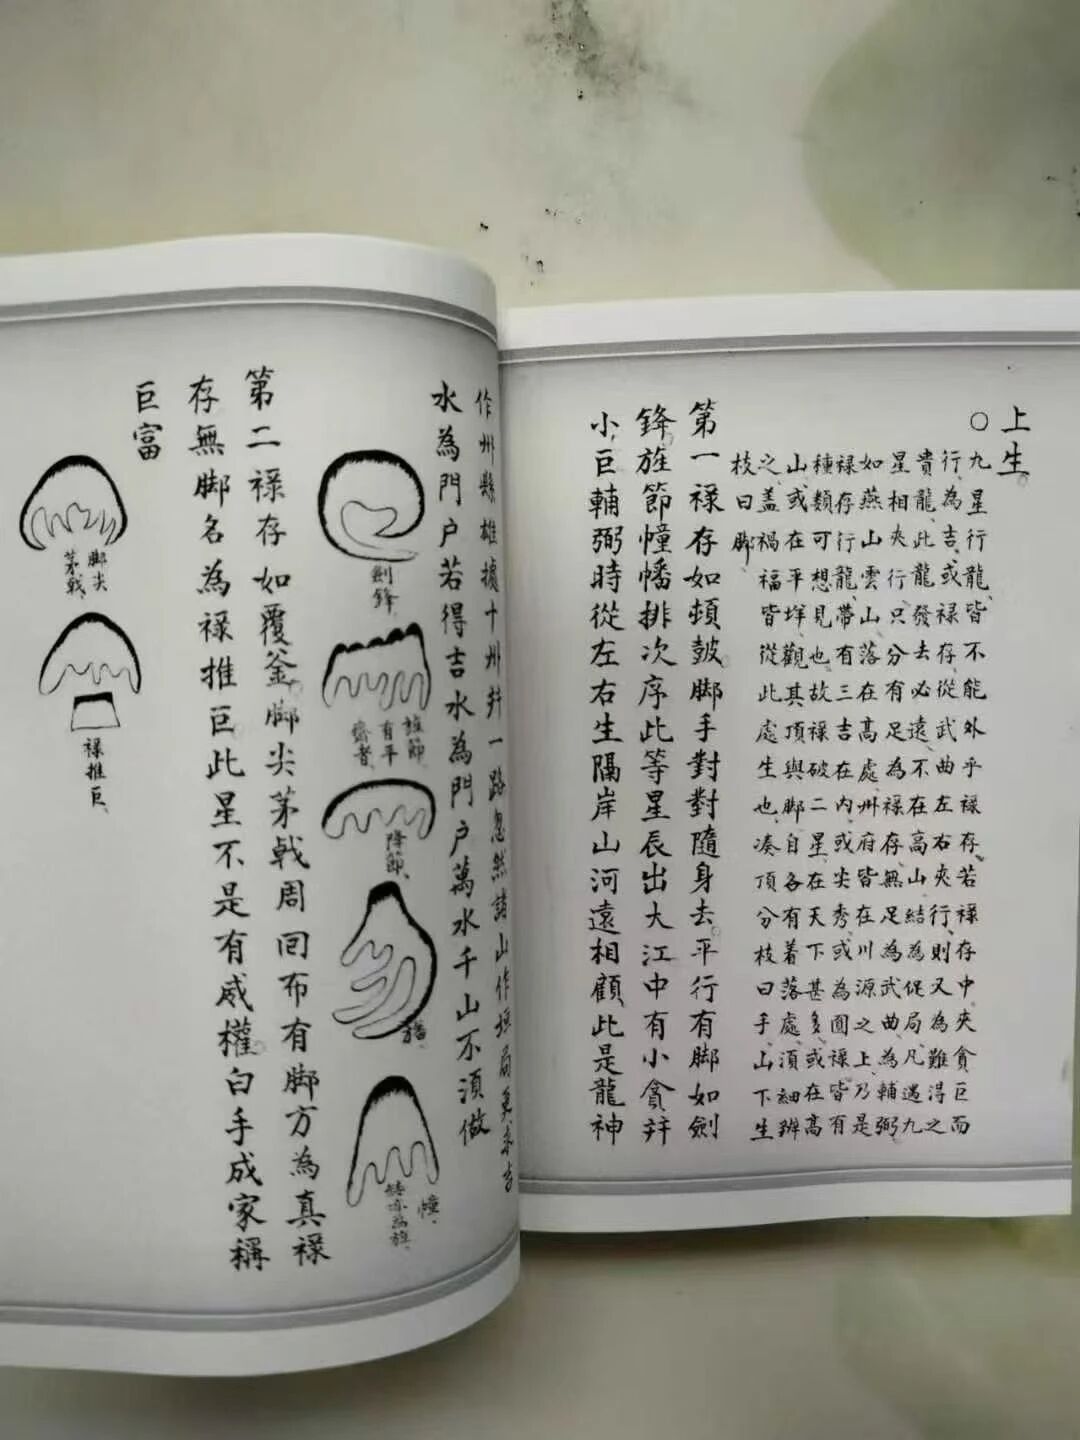 上生
○九星行龍、皆不能外乎祿存、若祿存中夾貪巨而
行、為吉、或祿存從武曲左右夾行、則又為難得之
貴龍、此龍發去必遠、不在高山結為促局、凡遇九
星相夾行只分有足為祿存、無足為武曲、為輔弼
如燕山雲山落在高處州府皆在川源之上乃是
祿存行龍、帶有三吉在內、或尖秀、或為圓、祿皆有
種類可想見也、故祿破二星在天下甚多、或在高
山或在平垟、觀其頂與脚、自各有着落處、須細辨
之、盖禍福皆從此處生也、凑頂分枝曰手、山下生
枝曰脚、
第一祿存如頓皷脚手對對隨身去平行有脚如劍
鋒旌節幢幡排次序此等星辰出大江中有小貪并
小巨輔弼時從左右生隔岸山河遠相顧此是龍神
作州縣雄據十州并一路忽然諸山作垣局更求吉
水為門户若得吉水為門户萬水千山不須做
劍鋒、
旌節、
有平
齊者、
降節、
旛、
幢、
第二祿存如覆釜脚尖茅戟周回布有脚方為真祿
存無脚名為祿推巨此星不是有威權白手成家稱
巨富
脚尖
茅戟、
祿推巨、